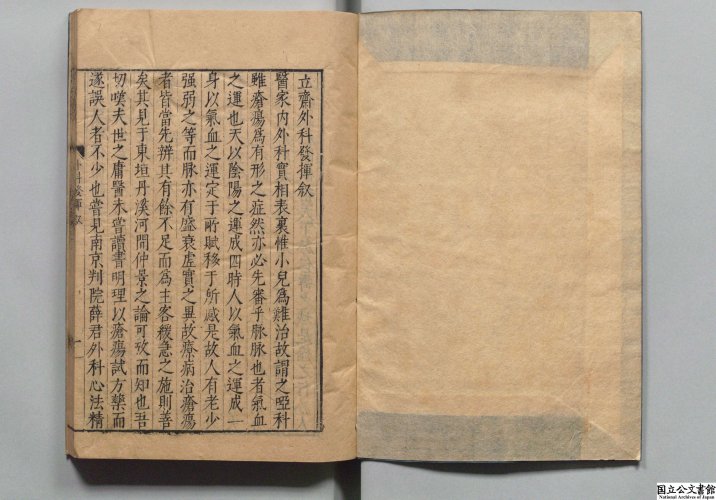 立齋外科發揮叙
醫家内外科實相表裏惟小兒爲難治故謂之啞科
雖瘡瘍爲有形之症然亦必先審乎脉脉也者氣血
之運也天以陰陽之運成四時人以氣血之運成一
身以氣血之運定于所賦移于所感是故人有老少
强弱之等而脉亦有盛衰虚實之異故療病治瘡瘍
者皆當先辨其有餘不足而爲主客緩急之施則善
矣其見于東垣丹溪河間仲景之論可攷而知也吾
切嘆夫世之庸醫未嘗讀書明理以瘡瘍試方藥而
遂誤人者不少也嘗見南京判院薛君外科心法精
外科發揮 叙
一
国立公文書館
National Archives of Japan